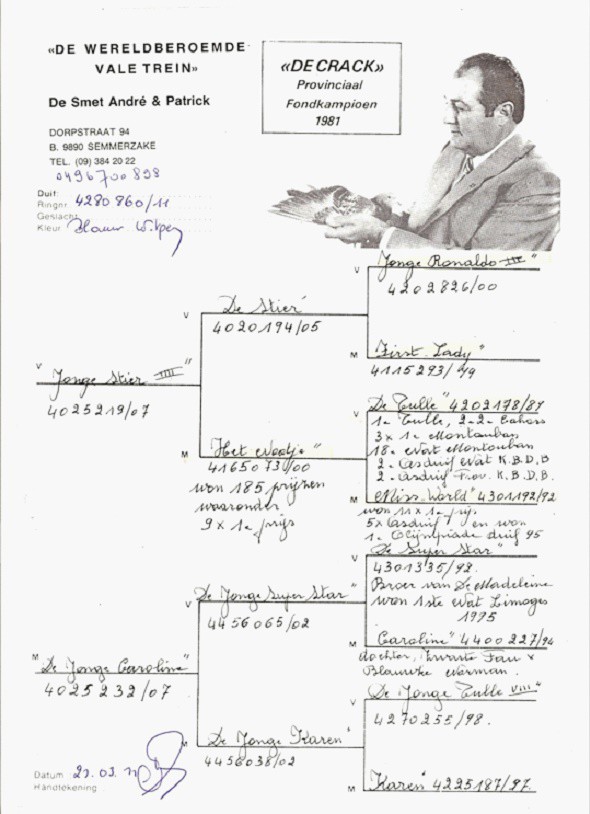 «DE WERELDBEROEMDE
VALE TREIN»
De Smet André & Patrick
DORPSTRAAT 94
B. 9890 SEMMERZAKE
TEL. (09) 384 20 22
0496700898
«DE CRACK»
Provinciaal
Fondkampioen
1981
Duif:
Ringnr. 4280860/11
Geslacht
Kleur Blauw
V
Jonge Stier IIII"
4025219/07
V
De Stier"
4020194/05
V
Jonge Ronaldo III"
4202826/00
M
"First Lady"
4115293/99
M
Het Wedje"
4165073/00
won 185 prijzen
waaronder
9 x 1e prijs
V
De Tulle" 4202178/87
1e Tulle, 2-2e Cahors
3x 1e Montauban
18e Nat Montauban
2e Asduif Nat K.B.D.B
2e Asduif Prov. K.B.D.B.
M
Miss World" 4301192/92
won 11 x 1e prijs
5x asduif en won
1e Olympiade duif 95
M
De Jonge Caroline"
4025232/07
V
De Jonge Super Star"
4456065/02
V
De Super Star"
4301335/92.
Broer van De Madeleine
won 1ste Nat Limoges
1995
M
"Caroline" 4400227/94
dochter, Zwarte Fau x
Blauwke Warman.
M
De Jonge Karen"
4456038/02
V
De Jonge Tulle VIII"
4270255/98.
M
Karen" 4225187/97.
Datum
Handtekening